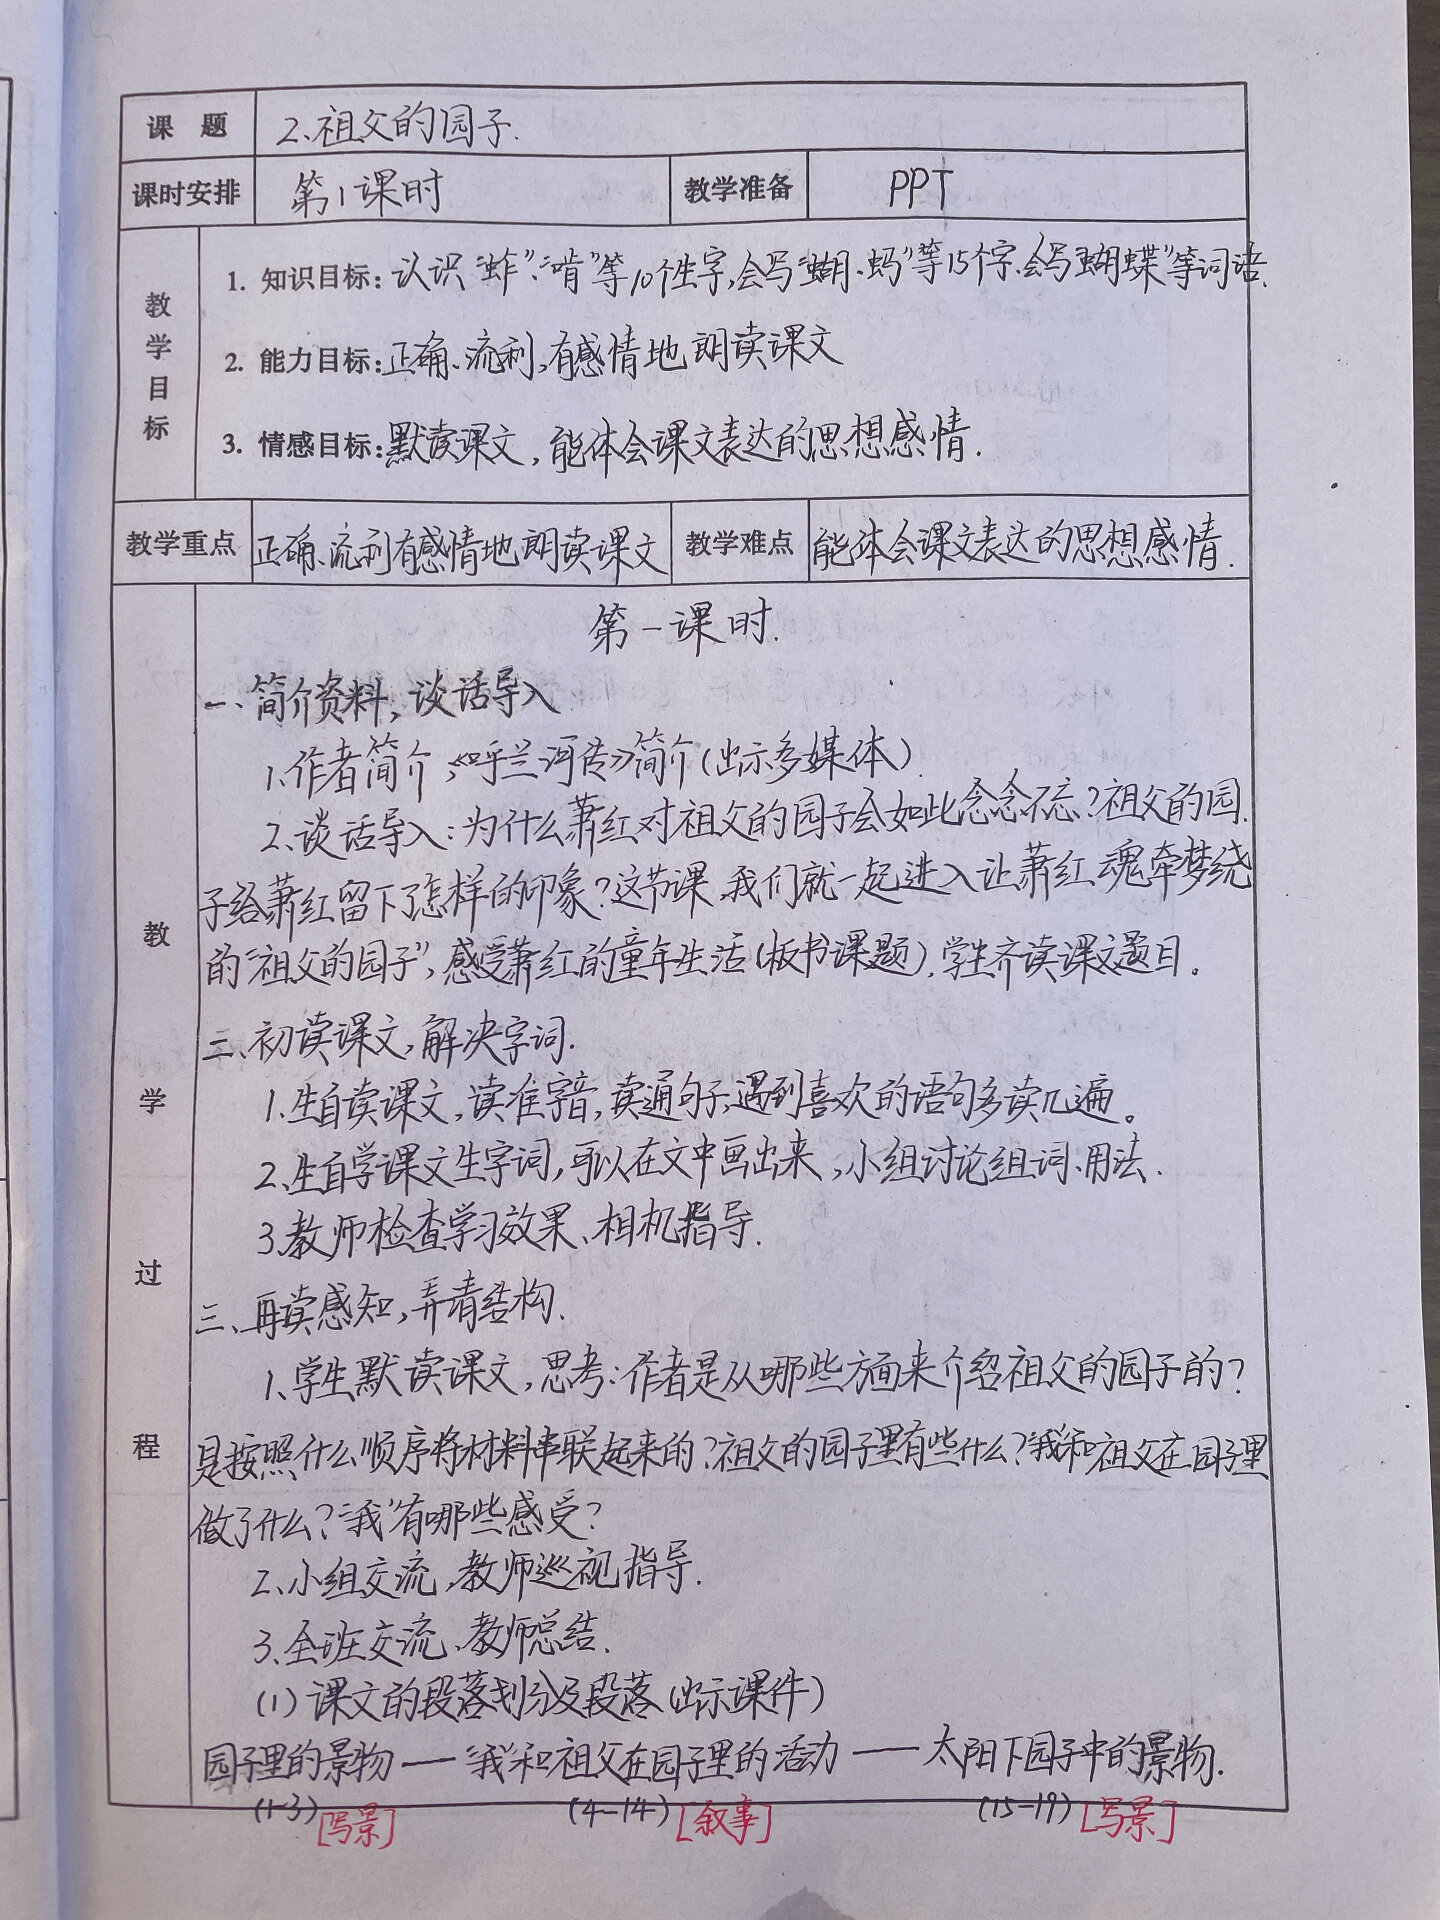 课 题 2、祖父的园子.
课时安排 第1课时 教学准备 PPT
教学目标
1. 知识目标:认识“蚱”、“啃”等10个生字,会写“蝴、蚂”等15个字、会写“蝴蝶”等词语.
2. 能力目标:正确、流利,有感情地朗读课文
3. 情感目标:默读课文,能体会课文表达的思想感情.
教学重点 正确、流利有感情地朗读课文 教学难点 能体会课文表达的思想感情.
教学过程
第一课时.
一、简介资料,谈话导入
1、作者简介,《呼兰河传》简介(出示多媒体).
2、谈话导入:为什么萧红对祖父的园子会如此念念不忘?祖父的园
子给萧红留下了怎样的印象?这节课,我们就一起进入让萧红魂牵梦绕
的“祖父的园子”,感受萧红的童年生活(板书课题).学生齐读课文题目。
二、初读课文,解决字词.
1、生自读课文,读准字音,读通句子,遇到喜欢的语句多读几遍。
2、生自学课文生字词,可以在文中画出来,小组讨论组词、用法.
3、教师检查学习效果、相机指导.
三、再读感知,弄清结构.
1、学生默读课文,思考:作者是从哪些方面来介绍祖父的园子的?
是按照什么顺序将材料串联起来的?祖父的园子里有些什么?“我”和祖父在园子里
做了什么?“我”有哪些感受?
2、小组交流,教师巡视指导.
3、全班交流、教师总结.
(1)课文的段落划分及段落(出示课件)
园子里的景物——“我”和祖父在园子里的活动——太阳下园子中的景物.
(1-3)[写景] (4-14)[叙事] (15-19)[写景]